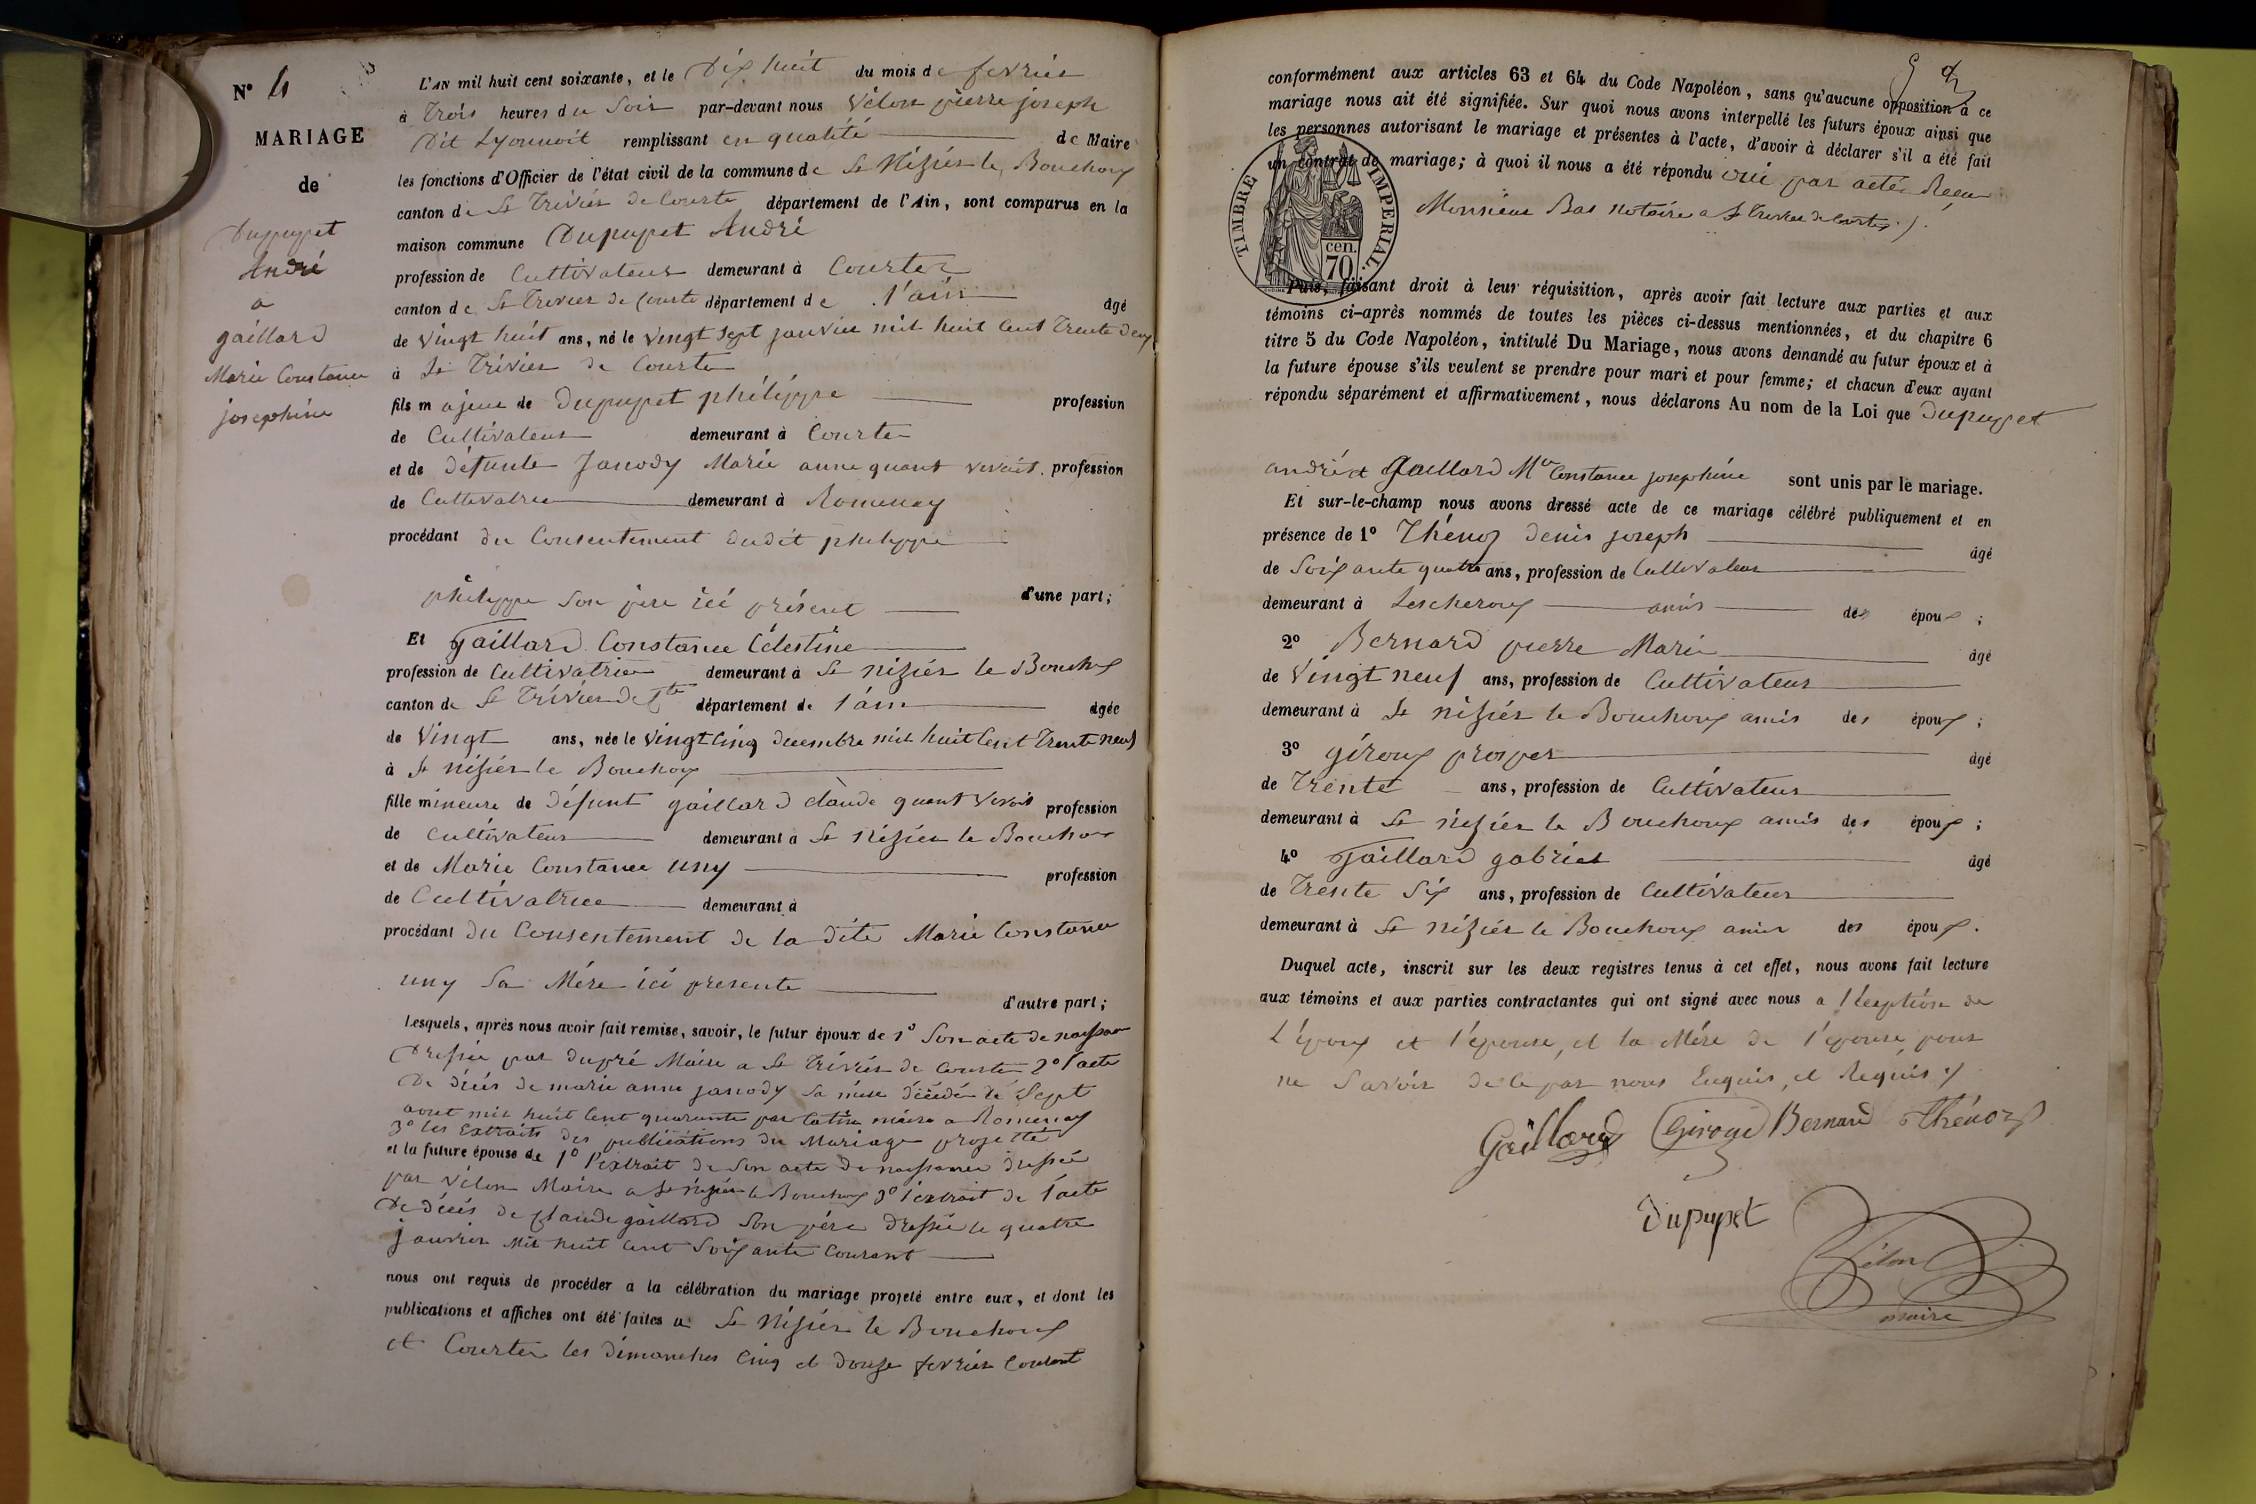 N° 4
MARIAGE
de
Dupupet
André
a
gaillard
Marie Constance
josephine
L'AN mil huit cent soixante, et le Dix huit du mois de fevrier
à Trois heures du Soir par-devant nous Vélon pierre joseph
Dit Lyonnoit remplissant en qualité de Maire
les fonctions d'Officier de l'état civil de la commune de St Nizier le Bouchoux
canton de St Trivier de Courte département de l'Ain, sont comparus en la
maison commune Dupupet André
profession de Cultivateur demeurant à Courtes
canton de St Trivier de Courte département de l'ain âgé
de Vingt huit ans, né le Vingt Sept janvier mil huit Cent Trente deux
à St Trivier de Courte
fils majeur de Dupupet philippe profession
de Cultivateur demeurant à Courte
et de défunte Janody Marie anne quant vivait profession
de Cultivatrice demeurant à Romenay
procédant du Consentement dudit philippe
philippe Son père ici présent d'une part;
Et Gaillard Constance Célestine
profession de Cultivatrice demeurant à St nizier le Bouchoux
canton de St Trivier de Cte département de l'ain âgée
de Vingt ans, née le Vingt Cinq decembre mil huit Cent Trente neuf
à St nizier le Bouchoux
fille mineure de défunt gaillard claude quant vivait profession
de Cultivateur demeurant à St Nizier le Bouchoux
et de Marie Constance uny profession
de Cultivatrice demeurant à
procédant du Consentement de la dite Marie Constance
uny Sa Mére ici presente d'autre part;
Lesquels, après nous avoir fait remise, savoir, le futur époux de 1° Son acte de naissance
Dressée par dupré Maire a St Trivier de Courte 2° l'acte
De décés de marie anne janody Sa mère décédée le Sept
aout mil huit Cent quarante par maire a Romenay
3° les Extraits des publications du Mariage projetté
et la future épouse de 1° l'extrait de Son acte de naissance dressée
par Vélon Maire a St nizier le Bouchoux 2° l'extrait de l'acte
De décés de Claude gaillard Son père Dressée le quatre
janvier Mil huit Cent Soixante Courant
nous ont requis de procéder a la célébration du mariage projeté entre eux, et dont les
publications et affiches ont été faites a St Nizier le Bouchoux
et Courtes les dimanches Cinq et douze fevrier Courant
conformément aux articles 63 et 64 du Code Napoléon, sans qu'aucune opposition à ce
mariage nous ait été signifiée. Sur quoi nous avons interpellé les futurs époux ainsi que
les personnes autorisant le mariage et présentes à l'acte, d'avoir à déclarer s'il a été fait
un contrat de mariage; à quoi il nous a été répondu oui par acte Reçu
Monsieur Bas notaire a St Trivier de Courtes ./.
TIMBRE IMPERIAL.
cen.
70
Puis, faisant droit à leur réquisition, après avoir fait lecture aux parties et aux
témoins ci-après nommés de toutes les pièces ci-dessus mentionnées, et du chapitre 6
titre 5 du Code Napoléon, intitulé Du Mariage, nous avons demandé au futur époux et à
la future épouse s'ils veulent se prendre pour mari et pour femme; et chacun d'eux ayant
répondu séparément et affirmativement, nous déclarons Au nom de la Loi que Dupupet
andré et Gaillard Mie Constance josephine sont unis par le mariage.
Et sur-le-champ nous avons dressé acte de ce mariage célébré publiquement et en
présence de 1° Thénoz denis joseph âgé
de Soixante quatre ans, profession de Cultivateur
demeurant à Lescheroux amis des époux ;
2° Bernard pierre Marie âgé
de Vingt neuf ans, profession de Cultivateur
demeurant à St nizier le Bouchoux amis des époux ;
3° giroux prosper âgé
de Trente ans, profession de Cultivateur
demeurant à St nizier le Bouchoux amis des époux ;
4° Gaillard gabriel âgé
de Trente Six ans, profession de Cultivateur
demeurant à St nizier le Bouchoux amis des époux.
Duquel acte, inscrit sur les deux registres tenus à cet effet, nous avons fait lecture
aux témoins et aux parties contractantes qui ont signé avec nous a l'éxeption de
L'époux et l'épouse, et la Mére de l'épouse, pour
ne Savoir de ce par nous Enquis, et Requis ./
Gaillard Giroux Bernard Thénoz
Dupupet
Vélon
maire